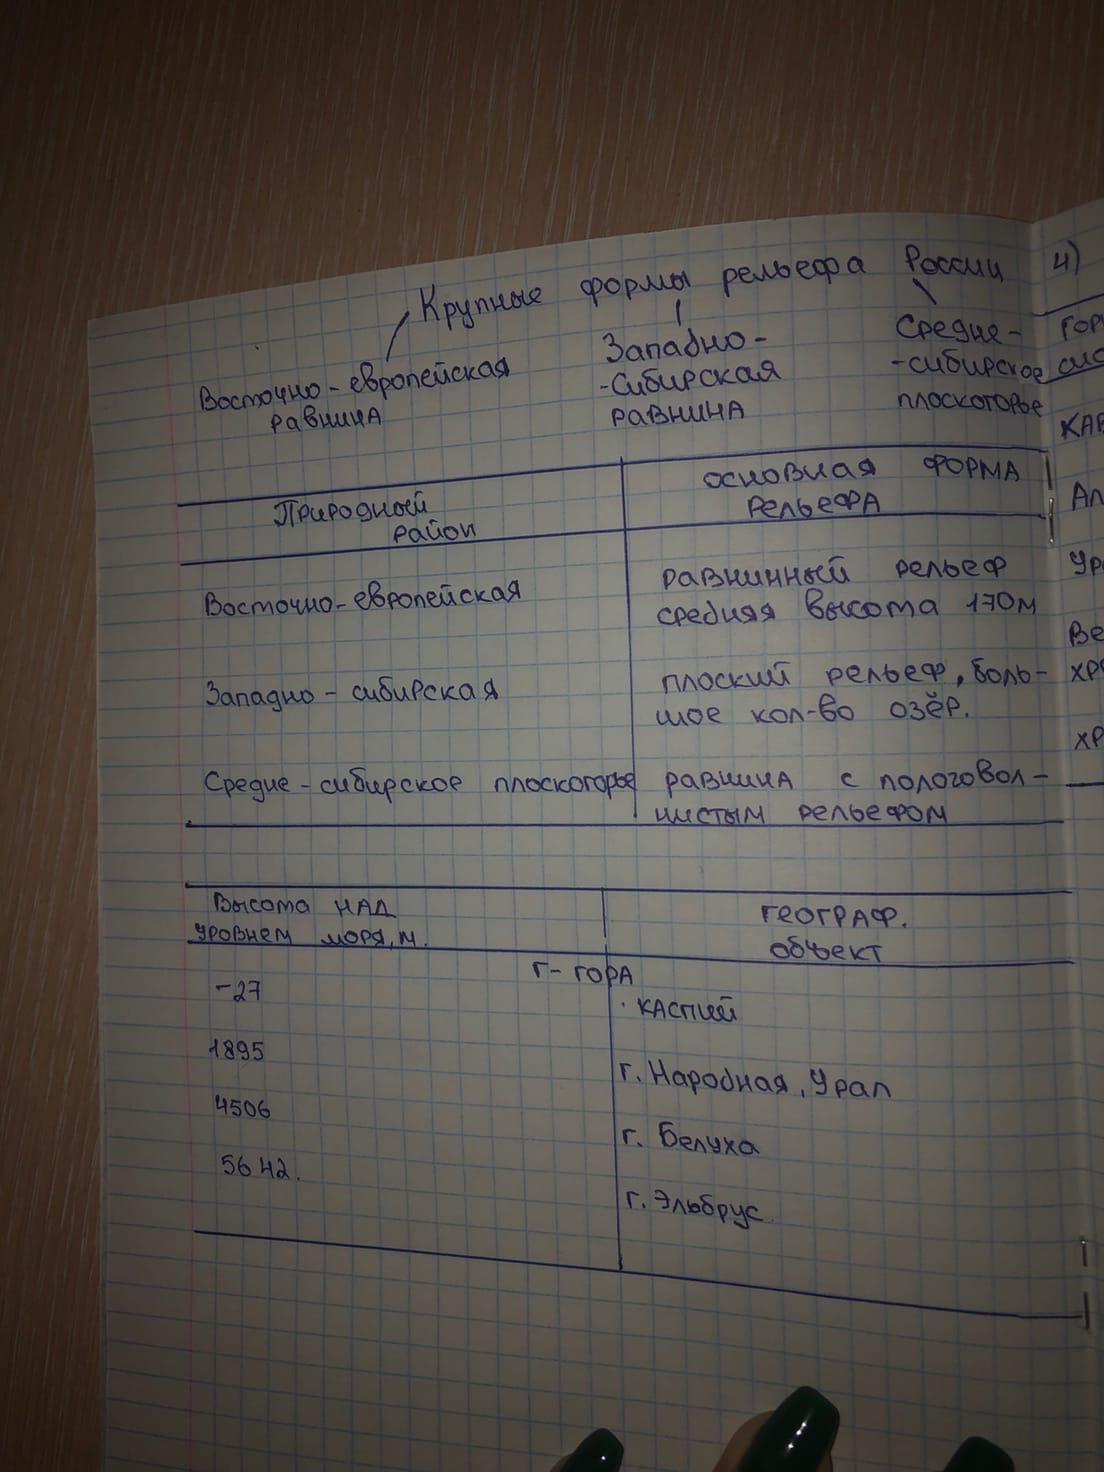 Крупные формы рельефа России
Восточно-европейская
равнина
Западно-
-Сибирская
равнина
Средне-
-сибирское
плоскогорье
Природный
район
основная форма
рельефа
Восточно-европейская
равнинный рельеф
средняя высота 170м
Западно-сибирская
плоский рельеф, боль-
шое кол-во озёр.
Средне-сибирское плоскогорье
равнина с пологовол-
нистым рельефом
Высота над
уровнем моря, м.
географ.
объект
г-гора
-27
Каспий
1895
г. Народная, Урал
4506
г. Белуха
5642.
г. Эльбрус
4)
гор
сис
КАВ
Ал
Ур
Ве
хр
хр